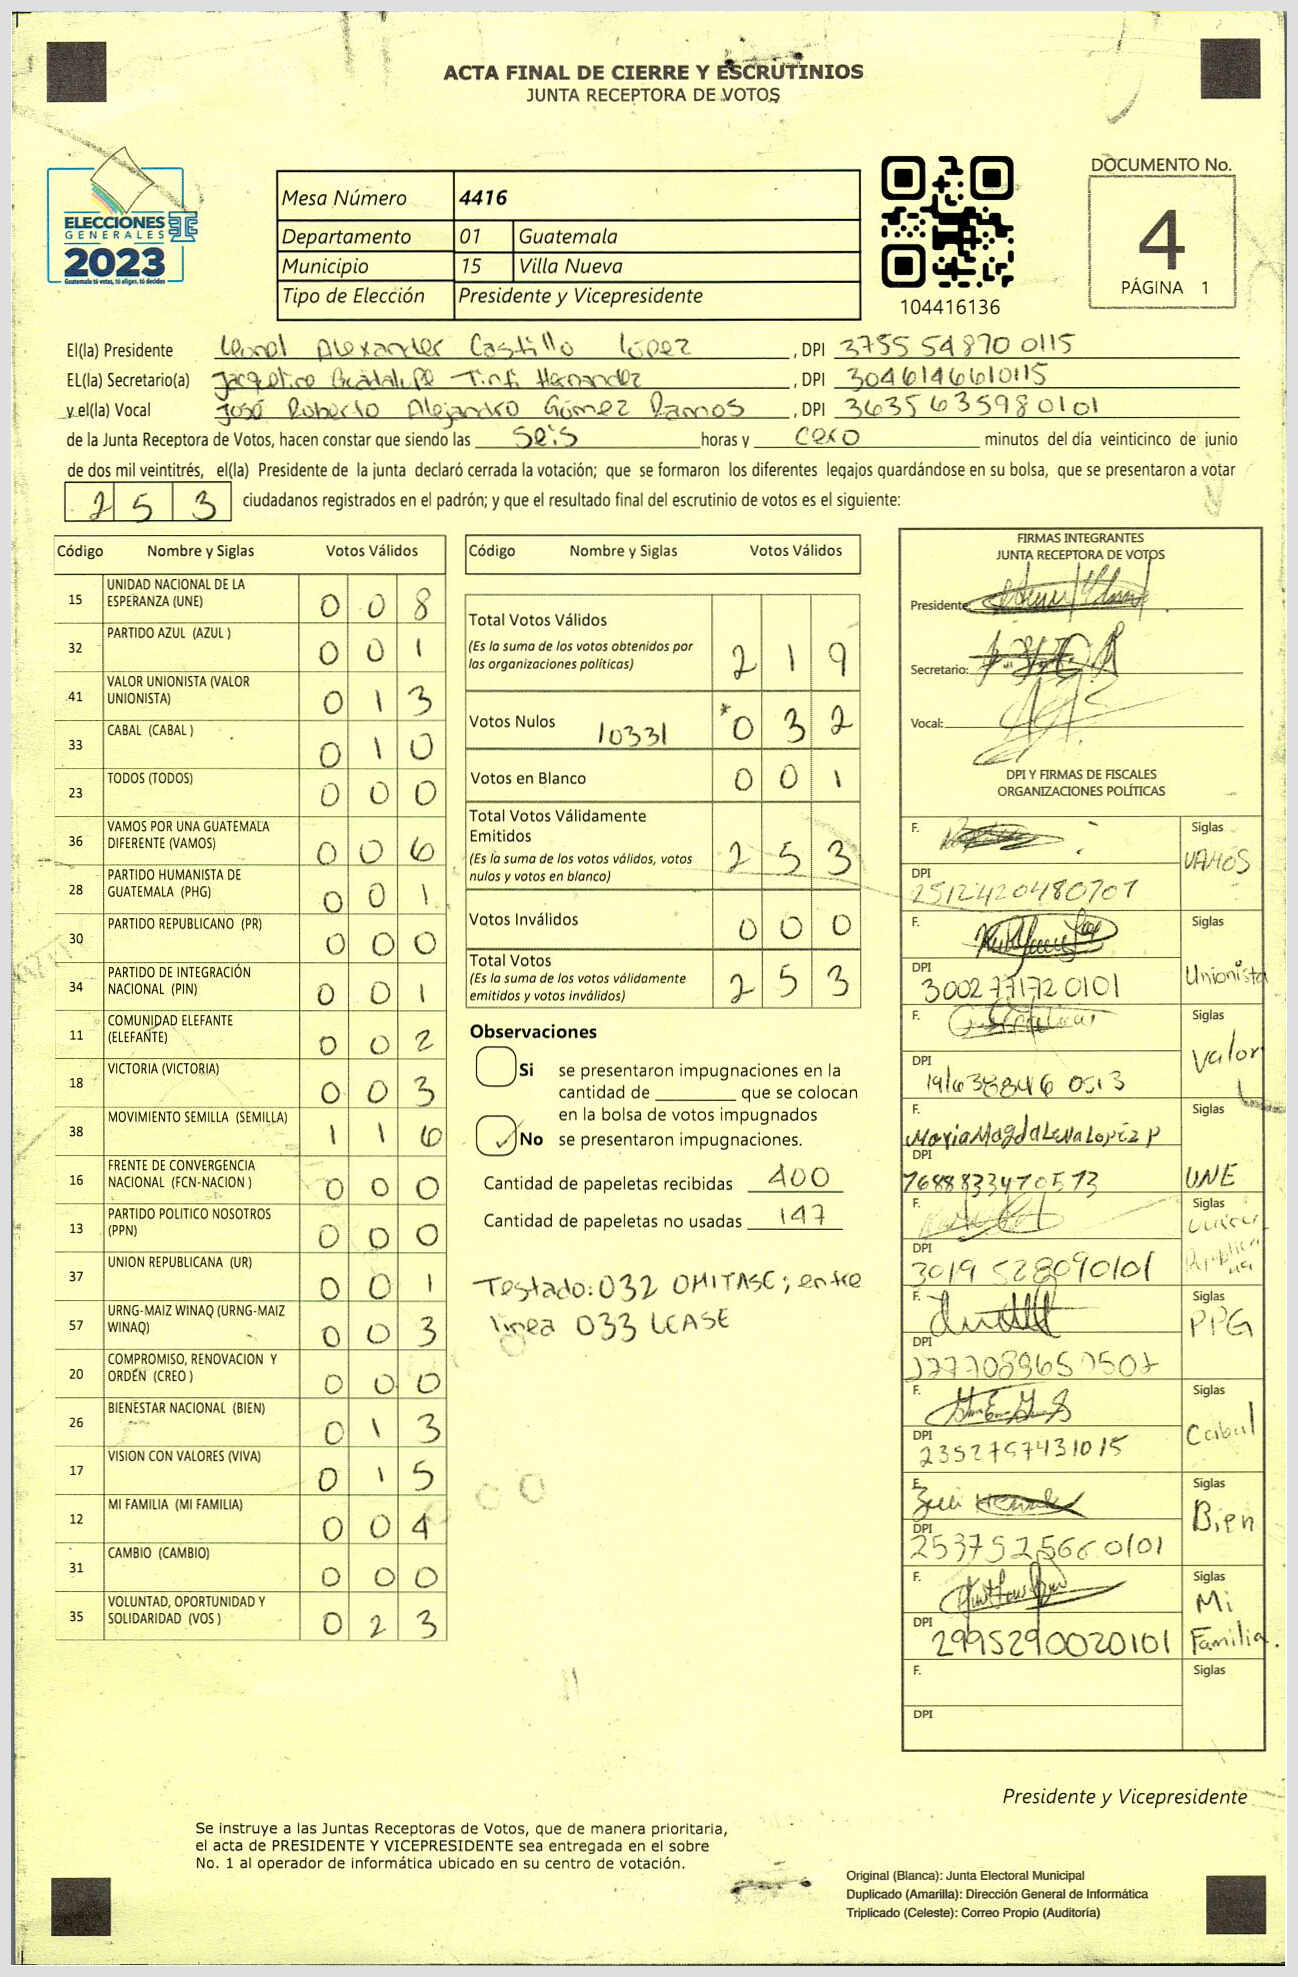 ACTA FINAL DE CIERRE Y ESCRUTINIOS
JUNTA RECEPTORA DE VOTOS
ELECCIONES
GENERALES
2023
Guatemala tú votas, tú eliges, tú decides
Mesa Número 4416
Departamento 01 Guatemala
Municipio 15 Villa Nueva
Tipo de Elección Presidente y Vicepresidente
104416136
DOCUMENTO No.
4
PÁGINA 1
El(la) Presidente Leonel Alexander Castillo López, DPI 3755 54870 0115
EL(la) Secretario(a) Jaqueline Guadalupe Hernandez, DPI 3046146610115
y el(la) Vocal José Roberto Alejandro Gómez Ramos, DPI 3635635980101
de la Junta Receptora de Votos, hacen constar que siendo las seis horas y cero minutos del día veinticinco de junio
de dos mil veintitrés, el(la) Presidente de la junta declaró cerrada la votación; que se formaron los diferentes legajos quardándose en su bolsa, que se presentaron a votar
253 ciudadanos registrados en el padrón; y que el resultado final del escrutinio de votos es el siguiente:
Código Nombre y Siglas Votos Válidos
15 UNIDAD NACIONAL DE LA ESPERANZA (UNE) 0 0 8
32 PARTIDO AZUL (AZUL ) 0 0 1
41 VALOR UNIONISTA (VALOR UNIONISTA) 0 1 3
33 CABAL (CABAL ) 0 1 0
23 TODOS (TODOS) 0 0 0
36 VAMOS POR UNA GUATEMALA DIFERENTE (VAMOS) 0 0 6
28 PARTIDO HUMANISTA DE GUATEMALA (PHG) 0 0 1
30 PARTIDO REPUBLICANO (PR) 0 0 0
34 PARTIDO DE INTEGRACIÓN NACIONAL (PIN) 0 0 1
11 COMUNIDAD ELEFANTE (ELEFANTE) 0 0 2
18 VICTORIA (VICTORIA) 0 0 3
38 MOVIMIENTO SEMILLA (SEMILLA) 1 1 6
16 FRENTE DE CONVERGENCIA NACIONAL (FCN-NACION ) 0 0 0
13 PARTIDO POLITICO NOSOTROS (PPN) 0 0 0
37 UNION REPUBLICANA (UR) 0 0 1
57 URNG-MAIZ WINAQ (URNG-MAIZ WINAQ) 0 0 3
20 COMPROMISO, RENOVACION Y ORDEN (CREO ) 0 0 0
26 BIENESTAR NACIONAL (BIEN) 0 1 3
17 VISION CON VALORES (VIVA) 0 1 5
12 MI FAMILIA (MI FAMILIA) 0 0 4
31 CAMBIO (CAMBIO) 0 0 0
35 VOLUNTAD, OPORTUNIDAD Y SOLIDARIDAD (VOS ) 0 2 3
Código Nombre y Siglas Votos Válidos
Total Votos Válidos 2 1 9
(Es la suma de los votos obtenidos por
las organizaciones políticas)
Votos Nulos *0 3 2
Votos en Blanco 0 0 1
Total Votos Válidamente
Emitidos 2 5 3
(Es la suma de los votos válidos, votos
nulos y votos en blanco)
Votos Inválidos 0 0 0
Total Votos 2 5 3
(Es la suma de los votos válidamente
emitidos y votos inválidos)
Observaciones
Si se presentaron impugnaciones en la
cantidad de ________ que se colocan
en la bolsa de votos impugnados
No se presentaron impugnaciones.
Cantidad de papeletas recibidas 400
Cantidad de papeletas no usadas 147
Testado: 032 OMITASE; entre
linea 033 LEASE
FIRMAS INTEGRANTES
JUNTA RECEPTORA DE VOTOS
Presidente:
Secretario:
Vocal:
DPI Y FIRMAS DE FISCALES
ORGANIZACIONES POLÍTICAS
F. Siglas VAMOS
DPI 2512420480707
F. Siglas Unionista
DPI 3002771720101
F. Siglas Valor
DPI
F. Maria Magdalena Lopez P Siglas UNE
DPI
F. Siglas
DPI 3019 528090101
F. Siglas PPG
DPI
F. Siglas Cabal
DPI 2352757431015
F. Siglas Bien
DPI 2537525660101
F. Siglas Mi Familia.
DPI 2995290020101
F. Siglas
DPI
Presidente y Vicepresidente
Se instruye a las Juntas Receptoras de Votos, que de manera prioritaria,
el acta de PRESIDENTE Y VICEPRESIDENTE sea entregada en el sobre
No. 1 al operador de informática ubicado en su centro de votación.
Original (Blanca): Junta Electoral Municipal
Duplicado (Amarilla): Dirección General de Informática
Triplicado (Celeste): Correo Propio (Auditoría)